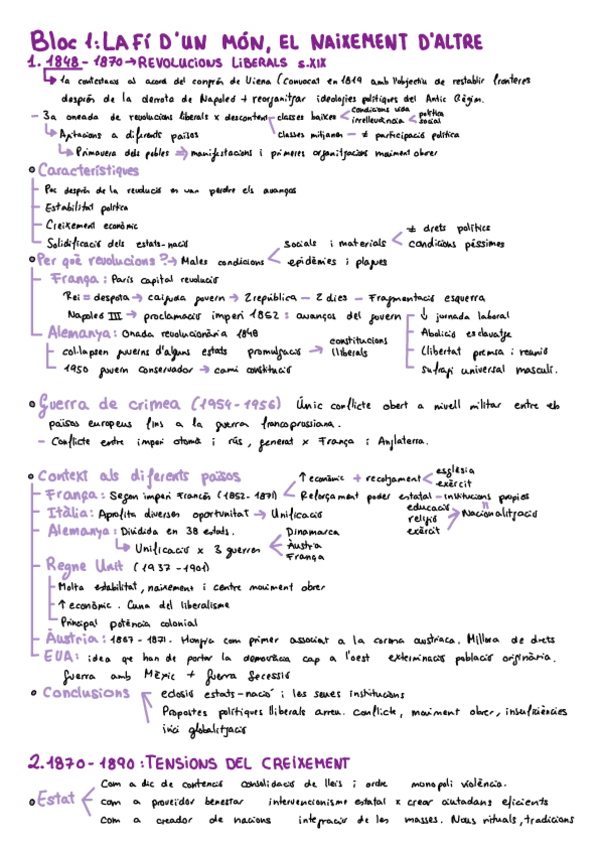 Bloc 1: LA FÍ D'UN MÓN, EL NAIXEMENT D'ALTRE
1. 1848 - 1870 → REVOLUCIONS LIBERALS s.XIX
1a contestació al acord del congrés de Viena (Convocat en 1819 amb l'objectiu de restablir fronteres
després de la derrota de Napoleó + reorganitzar ideologies polítiques del Antic Règim.
- 3a oneada de revolucions liberals x descontent classes baixes condicions vida irrellevància política social
Agitacions a diferents països classes mitjanes - ≠ participació política
Primavera dels pobles ⇒ manifestacions i primeres organitzacions moviment obrer
Característiques
Poc després de la revolució en van perdre els avanços
Estabilitat política
Creixement econòmic
Solidificació dels estats-nació
Per què revolucions? → Males condicions socials i materials ≠ drets polítics condicions pèssimes
epidèmies i plagues
França: París capital revolució
Rei = despota → caiguda govern → 2 república - 2 dies - Fragmentació esquerra
Napoleó III → proclamació imperi 1852: avanços del govern ↓ jornada laboral
Abolició esclavatge
Llibertat premsa i reunió
sufragi universal masculí.
Alemanya: Onada revolucionària 1848
col·lapsen governs d'alguns estats promulgació → constitucions lliberals
1950 govern conservador → canvi constitució
Guerra de crimea (1954-1956) Únic conflicte obert a nivell militar entre els
països europeus fins a la guerra francoprussiana.
- Conflicte entre imperi otomà i rús, generat x França i Anglaterra.
Context als diferents països
França: Segon imperi Francés (1852-1871) ↑ econòmic + recolzament església exèrcit
Reforçament poder estatal - institucions propies
Itàlia: Aprofita diverses oportunitat → Unificació
educació religió exèrcit → Nacionalització
Alemanya: Dividida en 38 estats.
Unificació x 3 guerres Dinamarca Àustria França
Regne Unit (1937-1901)
Molta estabilitat, naixement i centre moviment obrer
↑ econòmic. Cuna del liberalisme
Principal potència colonial
Àustria: 1867-1871. Hongria com primer associat a la corona austriaca. Millora de drets
EUA: idea que han de portar la democràcia cap a l'oest exterminació població originària.
Guerra amb Mèxic + Guerra Secessió
Conclusions eclosió estats-nació i les seues institucions
Propostes polítiques lliberals arreu. Conflicte, moviment obrer, insuficiències
inici globalització
2. 1870-1890: TENSIONS DEL CREIXEMENT
Estat Com a dic de contenció consolidació de lleis i ordre monopoli violència.
com a proveïdor benestar intervencionisme estatal x crear ciutadans eficients
com a creador de nacions integració de les masses. Nous rituals, tradicions